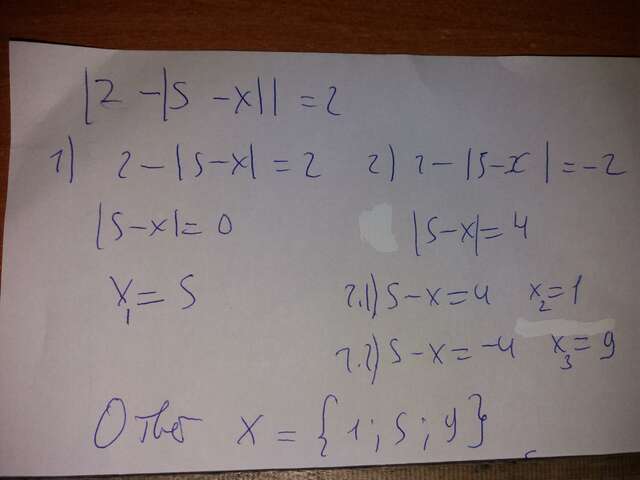 |2 - |5 - x|| = 2
1) 2 - |5 - x| = 2 2) 2 - |5 - x| = -2
|5 - x| = 0 |5 - x| = 4
x₁ = 5 2.1) 5 - x = 4 x₂ = 1
2.2) 5 - x = -4 x₃ = 9
Ответ x = {1; 5; 9}